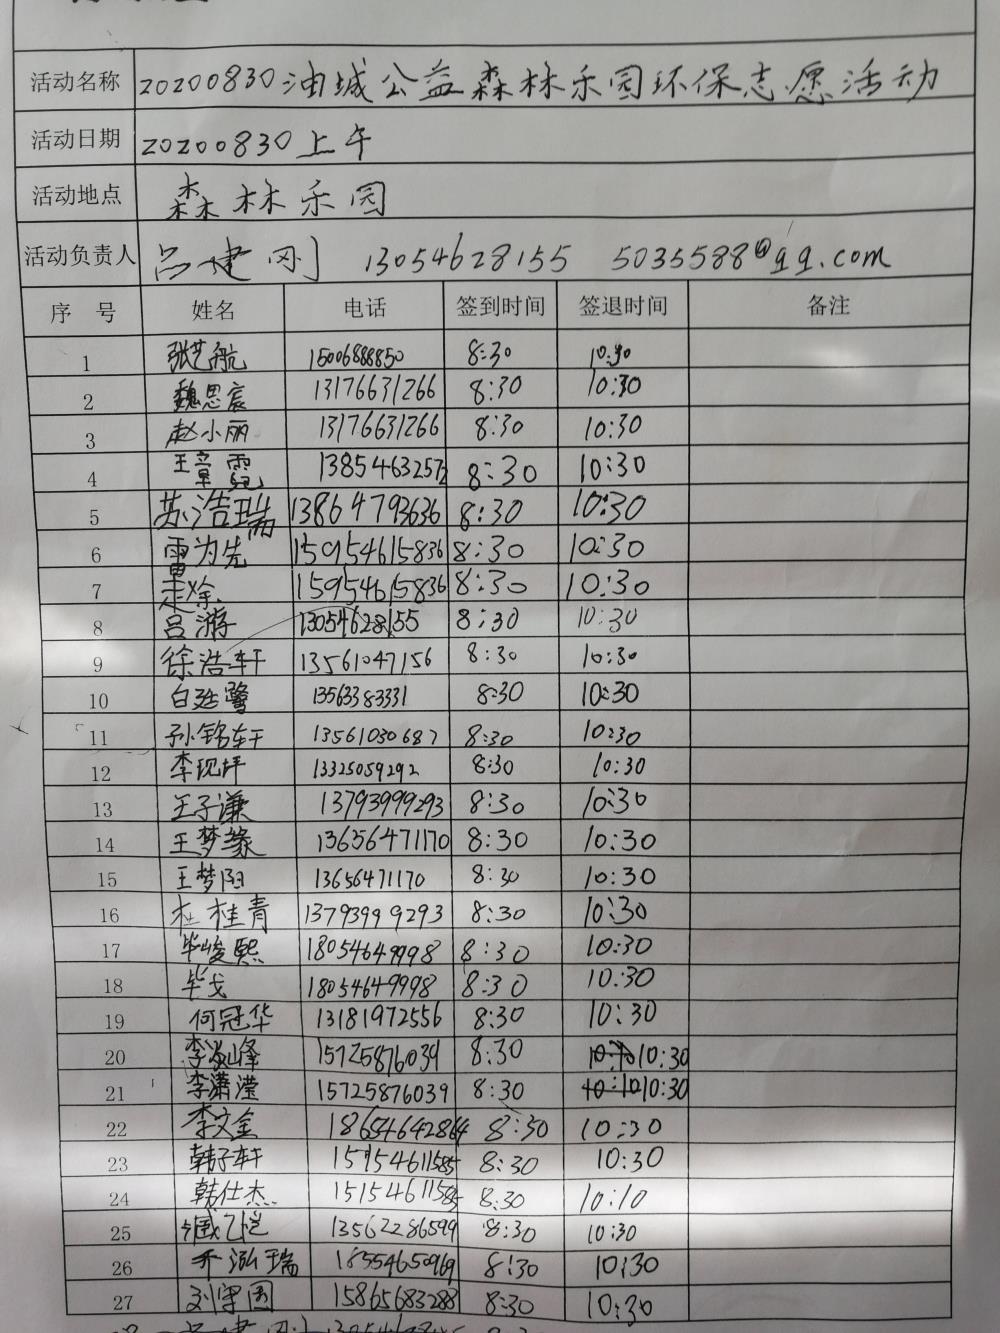 活动名称 20200830油城公益森林乐园环保志愿活动
活动日期 20200830上午
活动地点 森林乐园
活动负责人 吕建刚 13054628155 5035588@qq.com
序号 姓名 电话 签到时间 签退时间 备注
1 张艺航 15006888850 8:30 10:30
2 魏思宸 13176631266 8:30 10:30
3 赵小丽 13176631266 8:30 10:30
4 王章霓 13854632572 8:30 10:30
5 苏浩瑞 13864793636 8:30 10:30
6 雷为先 15954615836 8:30 10:30
7 15954615836 8:30 10:30
8 吕游 13054628155 8:30 10:30
9 徐浩轩 13561047156 8:30 10:30
10 白 鹭 13563383331 8:30 10:30
11 孙铭轩 13561030687 8:30 10:30
12 李现坪 13325059292 8:30 10:30
13 王子谦 13793999293 8:30 10:30
14 王梦缘 13656471170 8:30 10:30
15 王梦阳 13656471170 8:30 10:30
16 杜桂青 13793999293 8:30 10:30
17 毕峻熙 18054649998 8:30 10:30
18 毕戈 18054649998 8:30 10:30
19 何冠华 13181972556 8:30 10:30
20 李 峰 15725876039 8:30 10:30
21 李潇滢 15725876039 8:30 10:30
22 李文金 18654642864 8:30 10:30
23 韩子轩 15154611585 8:30 10:30
24 韩仕杰 15154611585 8:30 10:10
25 臧乙恺 13562286599 8:30 10:30
26 乔泓瑞 18554650969 8:30 10:30
27 刘守国 15865683288 8:30 10:30